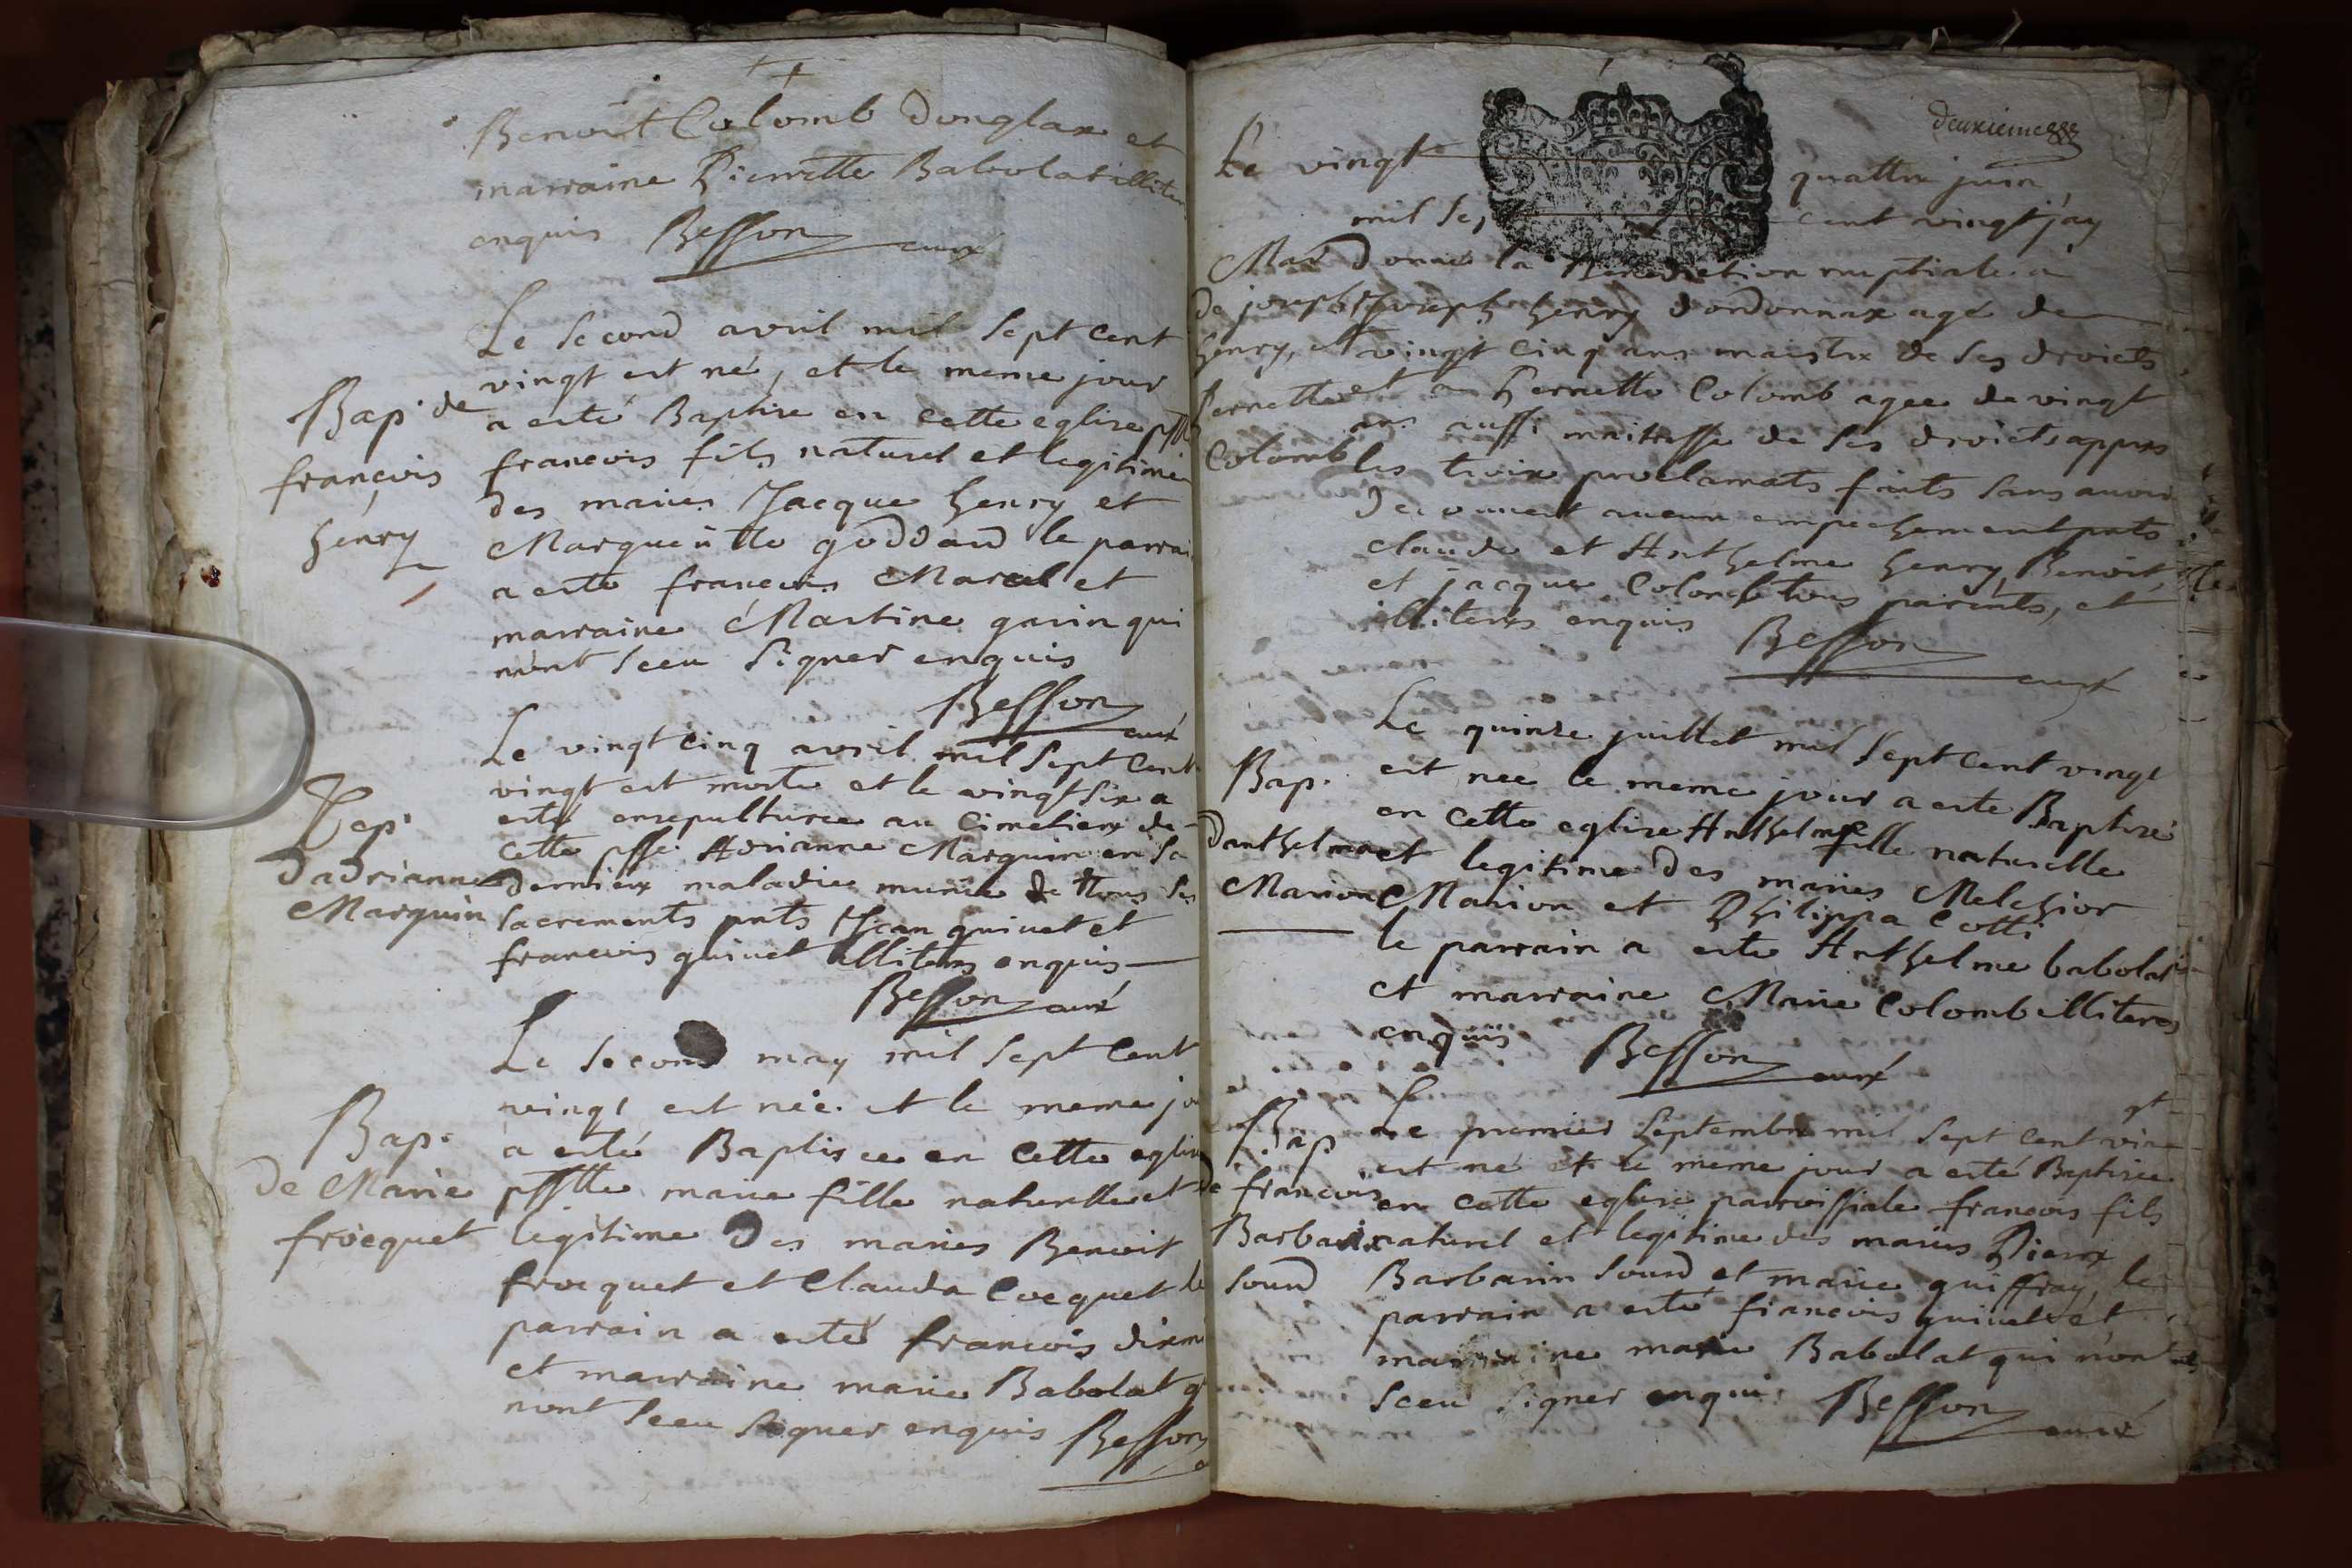 Benoit Colomb donglax et
marraine Pierrette Babolat illiteres
enquis Besson curé
Le second avril mil sept cent
vingt est né, et le meme jour
Bap. de
a esté Baptise en cette eglise psslle
françois
francois fils naturel et legitime
des maries Jacque henry et
henry
Margueritte goddard le parrai
a esté francois Marcel et
marraine Martine garin qui
nont sceu signer enquis
Besson curé
Le vingt cinq avril mil sept cent
vingt est morte et le vingt six a
Sep.
esté ensepulturee au cimetiere de
cette psse. Adrianne Marguin en sa
dadrianne
derniere maladie munie de tous ses
Marguin
sacrements pnts Jean guinet et
francois guinet illiteres enquis
Besson curé
Le second may mil sept cent
vingt est née et le meme jo
Bap.
a esté Baptisee en cette eglise
de Marie
psslle marie fille naturelle et
frocquet
legitime des maries Benoit
frocquet et Clauda Cocquet le
parrain a esté francois
et marraine marie Babolat q
nont sceu signer enquis Besson
deuxieme
Le vingt quattre juin
mil se cent vingt j'ay
Mar donné la Benediction nuptiale a
de joseph Joseph henry dordonnax agé de
henry, et vingt cinq ans maistre de ses droicts
Pernette et a Pernette Colomb agee de vingt
ans aussi maitresse de ses droicts appres
Colomb les troix proclamats faits sans avoir
decouvert aucun empechement pnts
claude et Anthelme henry, Benoit
et jacque Colomb tous parents, et
illiteres enquis Besson
curé
Le quinze juillet mil sept cent vingt
Bap. est née le meme jour a esté Baptisé
en cette eglise Anthelme fille naturelle
danthelme et legitime des maries Melchior
Marion Marion et Philippa Cotti
le parrain a esté Anthelme babolat
et marraine Marie Colomb illiteres
enquis Besson curé
Bap Le premier septembre mil sept cent vingt
est né et le meme jour a esté Baptisee
de francois en cette eglise parroissiale francois fils
Barbarin naturel et legitime des maries Pierre
sourd Barbarin sourd et marie guiffray, le
parrain a esté francois guinet et
marraine marie Babolat qui n'ont
sceu signer enquis Besson
curé